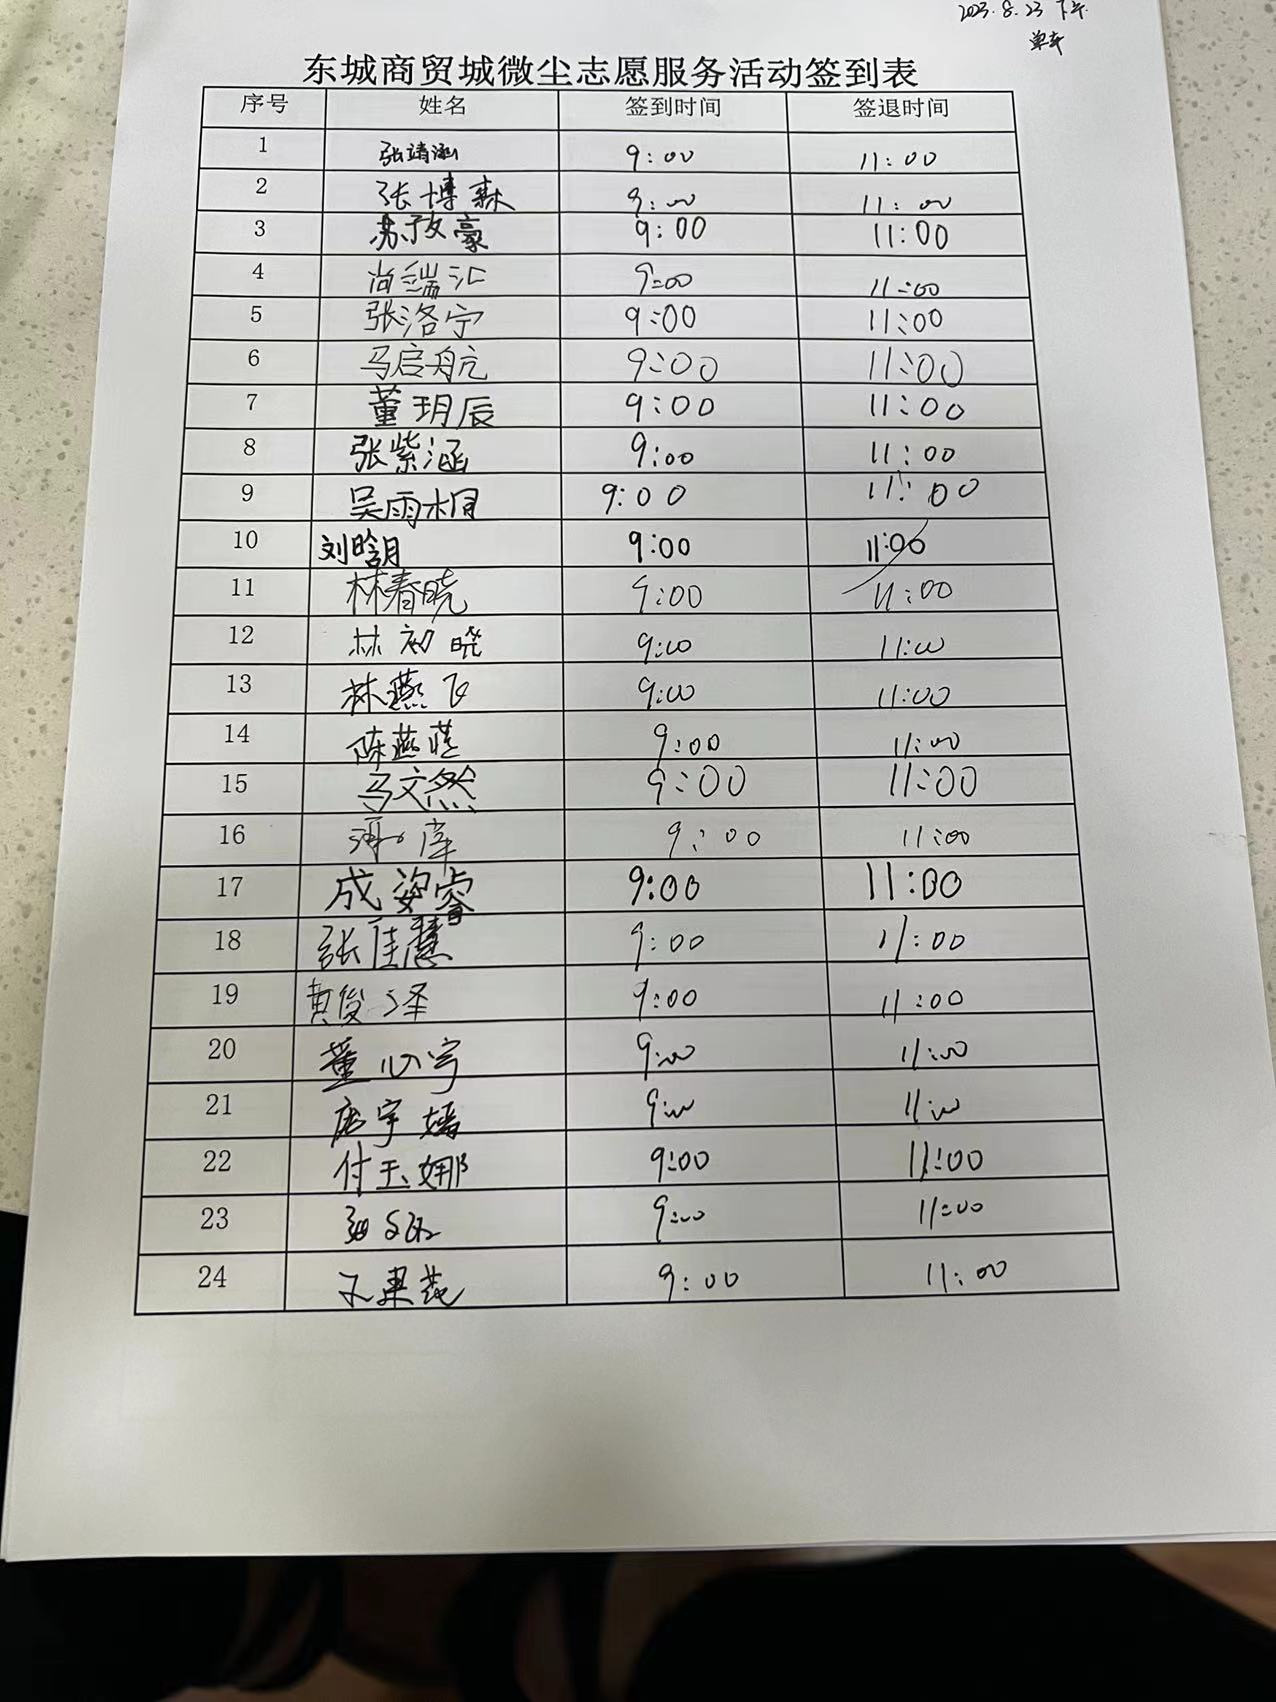 2023.8.23 下午
单车
东城商贸城微尘志愿服务活动签到表
序号 姓名 签到时间 签退时间
1 张靖涵 9:00 11:00
2 张博森 9:00 11:00
3 苏孜豪 9:00 11:00
4 尚端汇 9:00 11:00
5 张洛宁 9:00 11:00
6 马启航 9:00 11:00
7 董玥辰 9:00 11:00
8 张紫涵 9:00 11:00
9 吴雨桐 9:00 11:00
10 刘晗月 9:00 11:00
11 林春晓 9:00 11:00
12 林初晓 9:00 11:00
13 林燕飞 9:00 11:00
14 陈燕莲 9:00 11:00
15 马文然 9:00 11:00
16 9:00 11:00
17 成姿睿 9:00 11:00
18 张佳慧 9:00 11:00
19 黄俊泽 9:00 11:00
20 董心宇 9:00 11:00
21 唐宇嫣 9:00 11:00
22 付玉娜 9:00 11:00
23 9:00 11:00
24 9:00 11:00